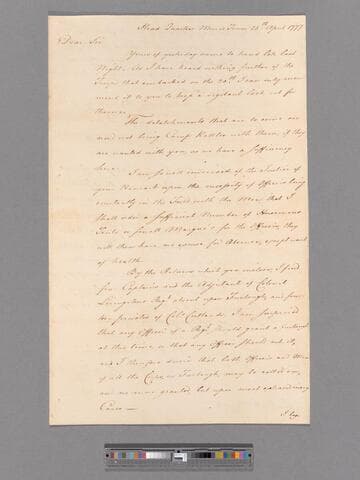 Head Quarters Morris Town 25th April 1777
Dear Sir
Yours of yesterday came to hand late last
Night. As I have heard nothing further of the
Troops that embarked on the 20th I can only recom=
mend it to you to keep a vigilant look out for
them.
The detatchments that are to come on
need not bring Camp Kettles with them, if they
are wanted with you, as we have a sufficiency
here.
I am so well convinced of the Justice of
your Remark upon the necessity of Officers being
constantly in the Field with the Men that I
shall order a sufficient Number of Horsemens
Tents or small Marquees for the Officers, they
will then have no excuse for Absence, except want
of health.
By the Returns which you inclose, I find
five Captains and the Adjutant of Colonel
Livingstons Regt absent upon Furlough, and four=
teen privates of Colo Cortlands. I am surprised
that any Officer of a Regt should grant a furlough
at this time, or that any Officer should ask it,
and I therefore desire that both Officers and Men
of all the Corps on Furlough may be called in,
and no more granted but upon most extraordinary
Cases —